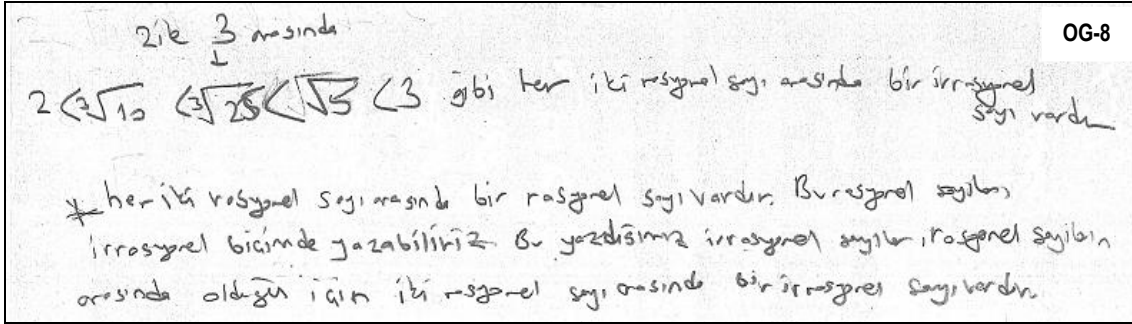 2 ile 3 arasında
OG-8
2 < ∛10 < ∛25 < √5 < 3 gibi her iki rasyonel sayı arasında bir irrasyonel
sayı vardır
* her iki rasyonel sayı arasında bir rasyonel sayı vardır. Bu rasyonel sayıları
irrasyonel biçimde yazabiliriz. Bu yazdığımız irrasyonel sayılar, rasyonel sayıların
arasında olduğu için iki rasyonel sayı arasında bir irrasyonel sayı vardır.